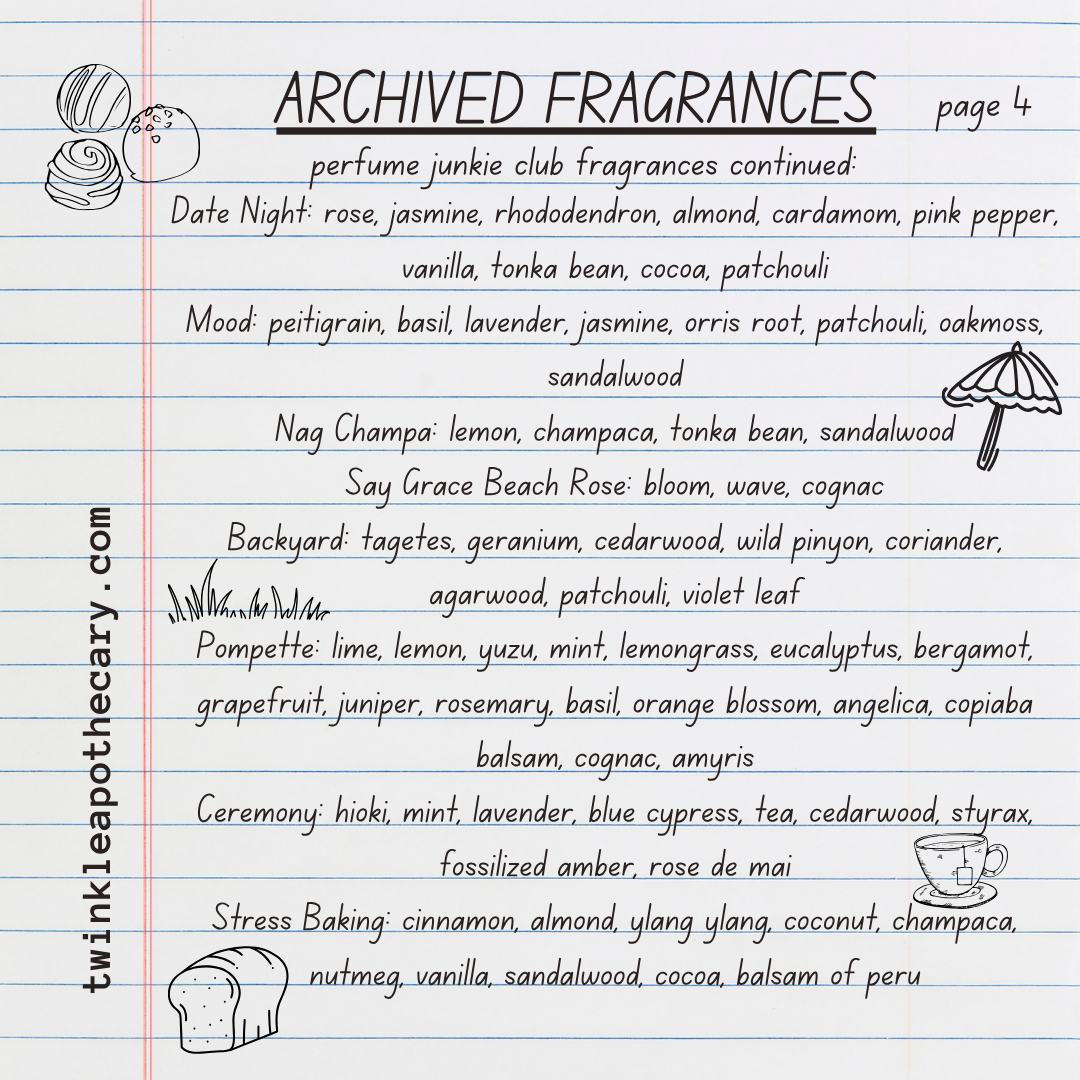 ARCHIVED FRAGRANCES
page 4
perfume junkie club fragrances continued:
Date Night: rose, jasmine, rhododendron, almond, cardamom, pink pepper,
vanilla, tonka bean, cocoa, patchouli
Mood: peitigrain, basil, lavender, jasmine, orris root, patchouli, oakmoss,
sandalwood
Nag Champa: lemon, champaca, tonka bean, sandalwood
Say Grace Beach Rose: bloom, wave, cognac
Backyard: tagetes, geranium, cedarwood, wild pinyon, coriander,
agarwood, patchouli, violet leaf
Pompette: lime, lemon, yuzu, mint, lemongrass, eucalyptus, bergamot,
grapefruit, juniper, rosemary, basil, orange blossom, angelica, copiaba
balsam, cognac, amyris
Ceremony: hioki, mint, lavender, blue cypress, tea, cedarwood, styrax,
fossilized amber, rose de mai
Stress Baking: cinnamon, almond, ylang ylang, coconut, champaca,
nutmeg, vanilla, sandalwood, cocoa, balsam of peru
twinkleapothecary.com